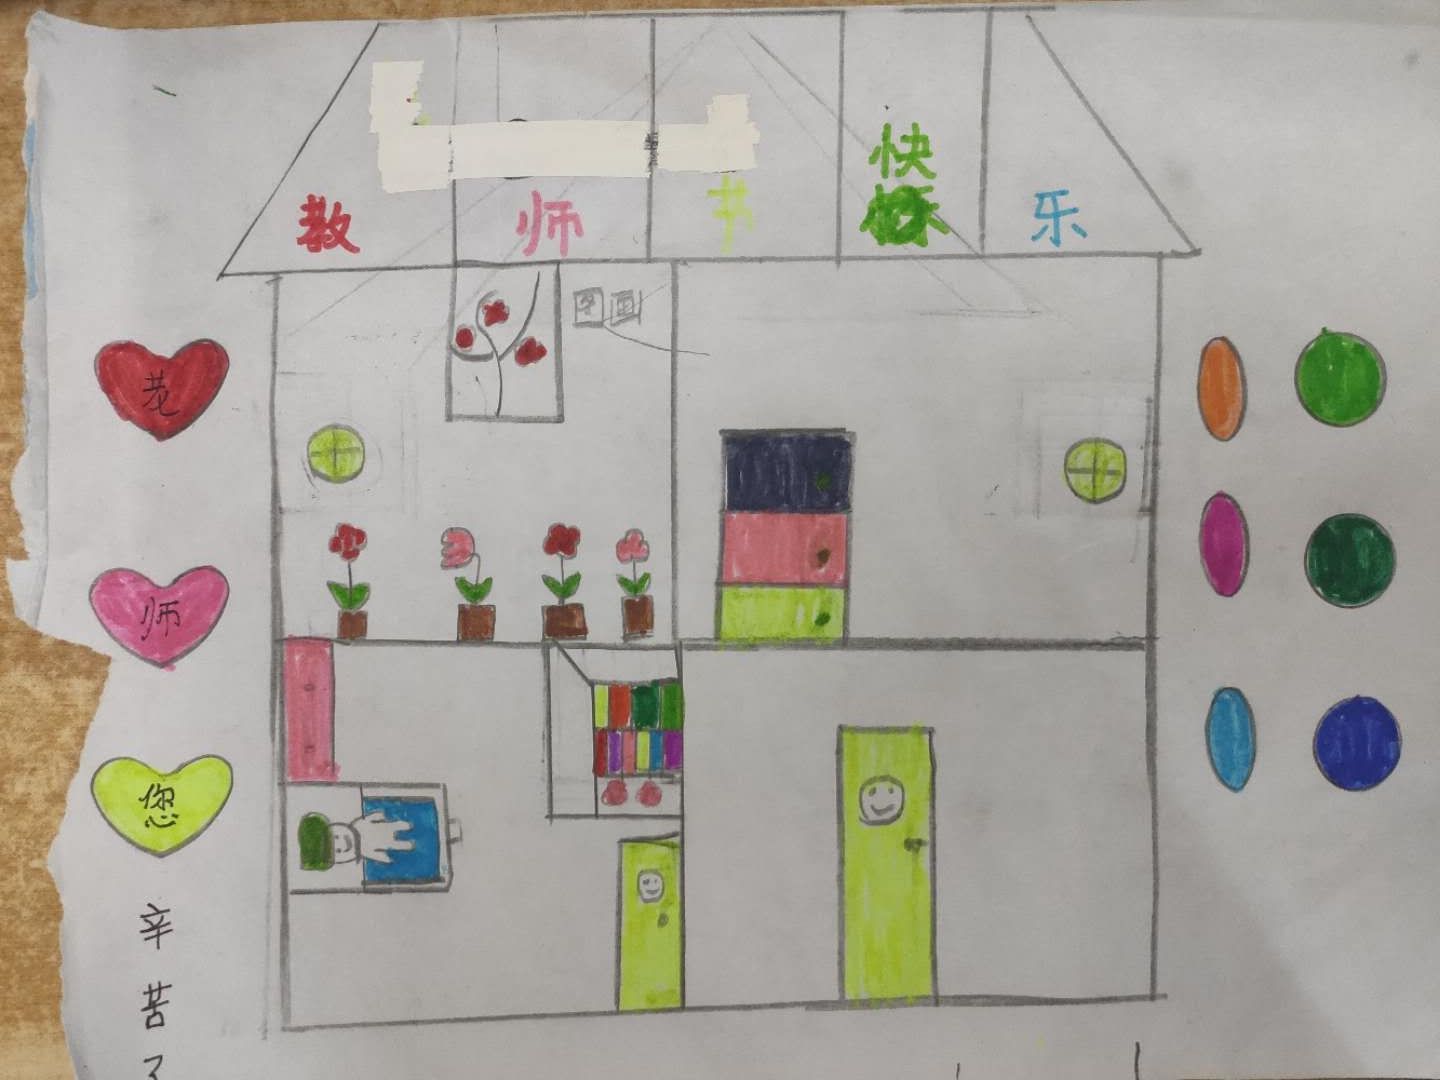 教师节快乐
字画
老师您辛苦了